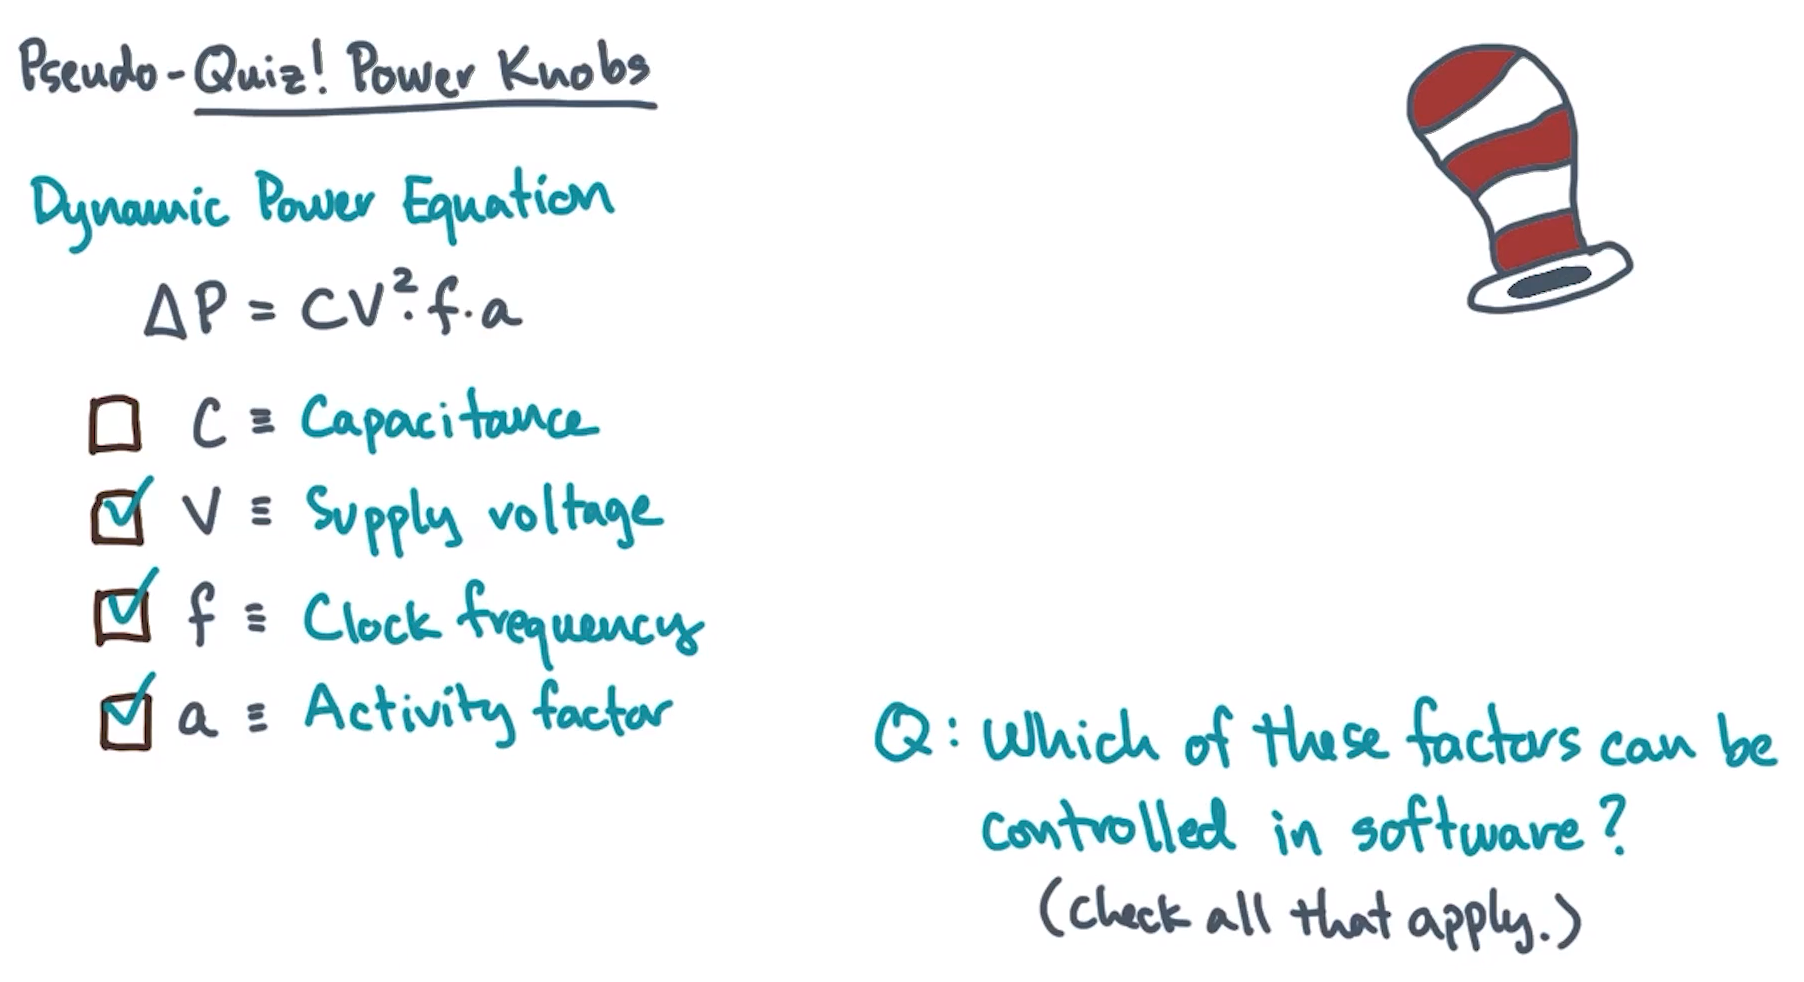 Pseudo-Quiz! Power Knobs
Dynamic Power Equation
ΔP = CV²·f·a
C ≡ Capacitance
V ≡ Supply voltage
f ≡ Clock frequency
a ≡ Activity factor
Q: Which of these factors can be
controlled in software?
(check all that apply.)